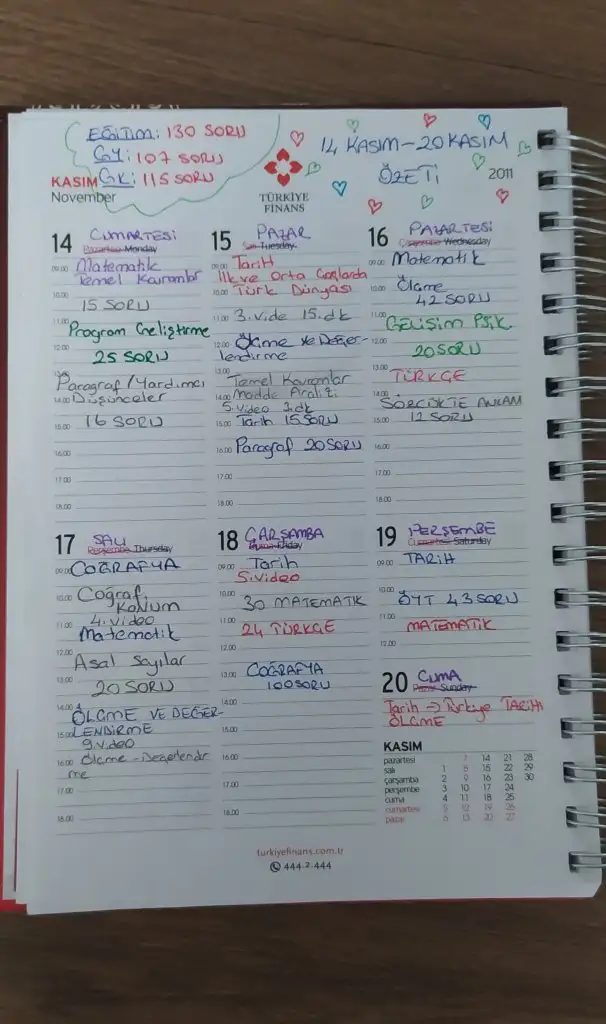 EĞİTİM: 130 SORU
GY: 107 SORU
GK: 115 SORU
KASIM
November
TÜRKİYE
FİNANS
14 KASIM-20 KASIM
ÖZETİ
2011
14 CUMARTESİ
Pazartesi Monday
09.00 Matematik
Temel Kavramlar
10.00
15 SORU
11.00
Program Geliştirme
12.00
25 SORU
13.00
Paragraf/Yardımcı
14.00 Düşünceler
15.00 16 SORU
16.00
17.00
18.00
15 PAZAR
Salı Tuesday
09.00 Tarih
İlk ve Orta Çağlarda
10.00 Türk Dünyası
11.00 3. vide 15. dk
12.00 Ölçme ve Değer-
lendirme
13.00
Temel Kavramlar
14.00 Madde Analizi
5. video 3. dk
15.00 Tarih 15 SORU
16.00 Paragraf 20 SORU
17.00
18.00
16 PAZARTESİ
Çarşamba Wednesday
09.00 Matematik
10.00 Ölçme
42 SORU
11.00
GELİŞİM PSİK.
12.00
20 SORU
13.00
TÜRKÇE
14.00
SÖZCÜKTE ANLAM
15.00 12 SORU
16.00
17.00
18.00
17 SALI
Perşembe Thursday
09.00 COĞRAFYA
10.00 Coğraf.
KONUM
11.00 4. video
Matematik
12.00
Asal Sayılar
13.00
20 SORU
14.00
ÖLÇME VE DEĞER-
15.00 LENDİRME
9. video
16.00 Ölçme-Değerlendir
me
17.00
18.00
18 ÇARŞAMBA
Cuma Friday
09.00 Tarih
5. video
10.00
30 MATEMATİK
11.00
24 TÜRKÇE
12.00
13.00 COĞRAFYA
100 SORU
14.00
15.00
16.00
17.00
18.00
19 PERŞEMBE
Cumartesi Saturday
09.00 TARİH
10.00
ÖYT 43 SORU
11.00
MATEMATİK
12.00
20 CUMA
Pazar Sunday
Tarih → Türkiye TARİHİ
ÖLÇME
KASIM
pazartesi 7 14 21 28
salı 1 8 15 22 29
çarşamba 2 9 16 23 30
perşembe 3 10 17 24
cuma 4 11 18 25
cumartesi 5 12 19 26
pazar 6 13 20 27
turkiyefinans.com.tr
444 2 444